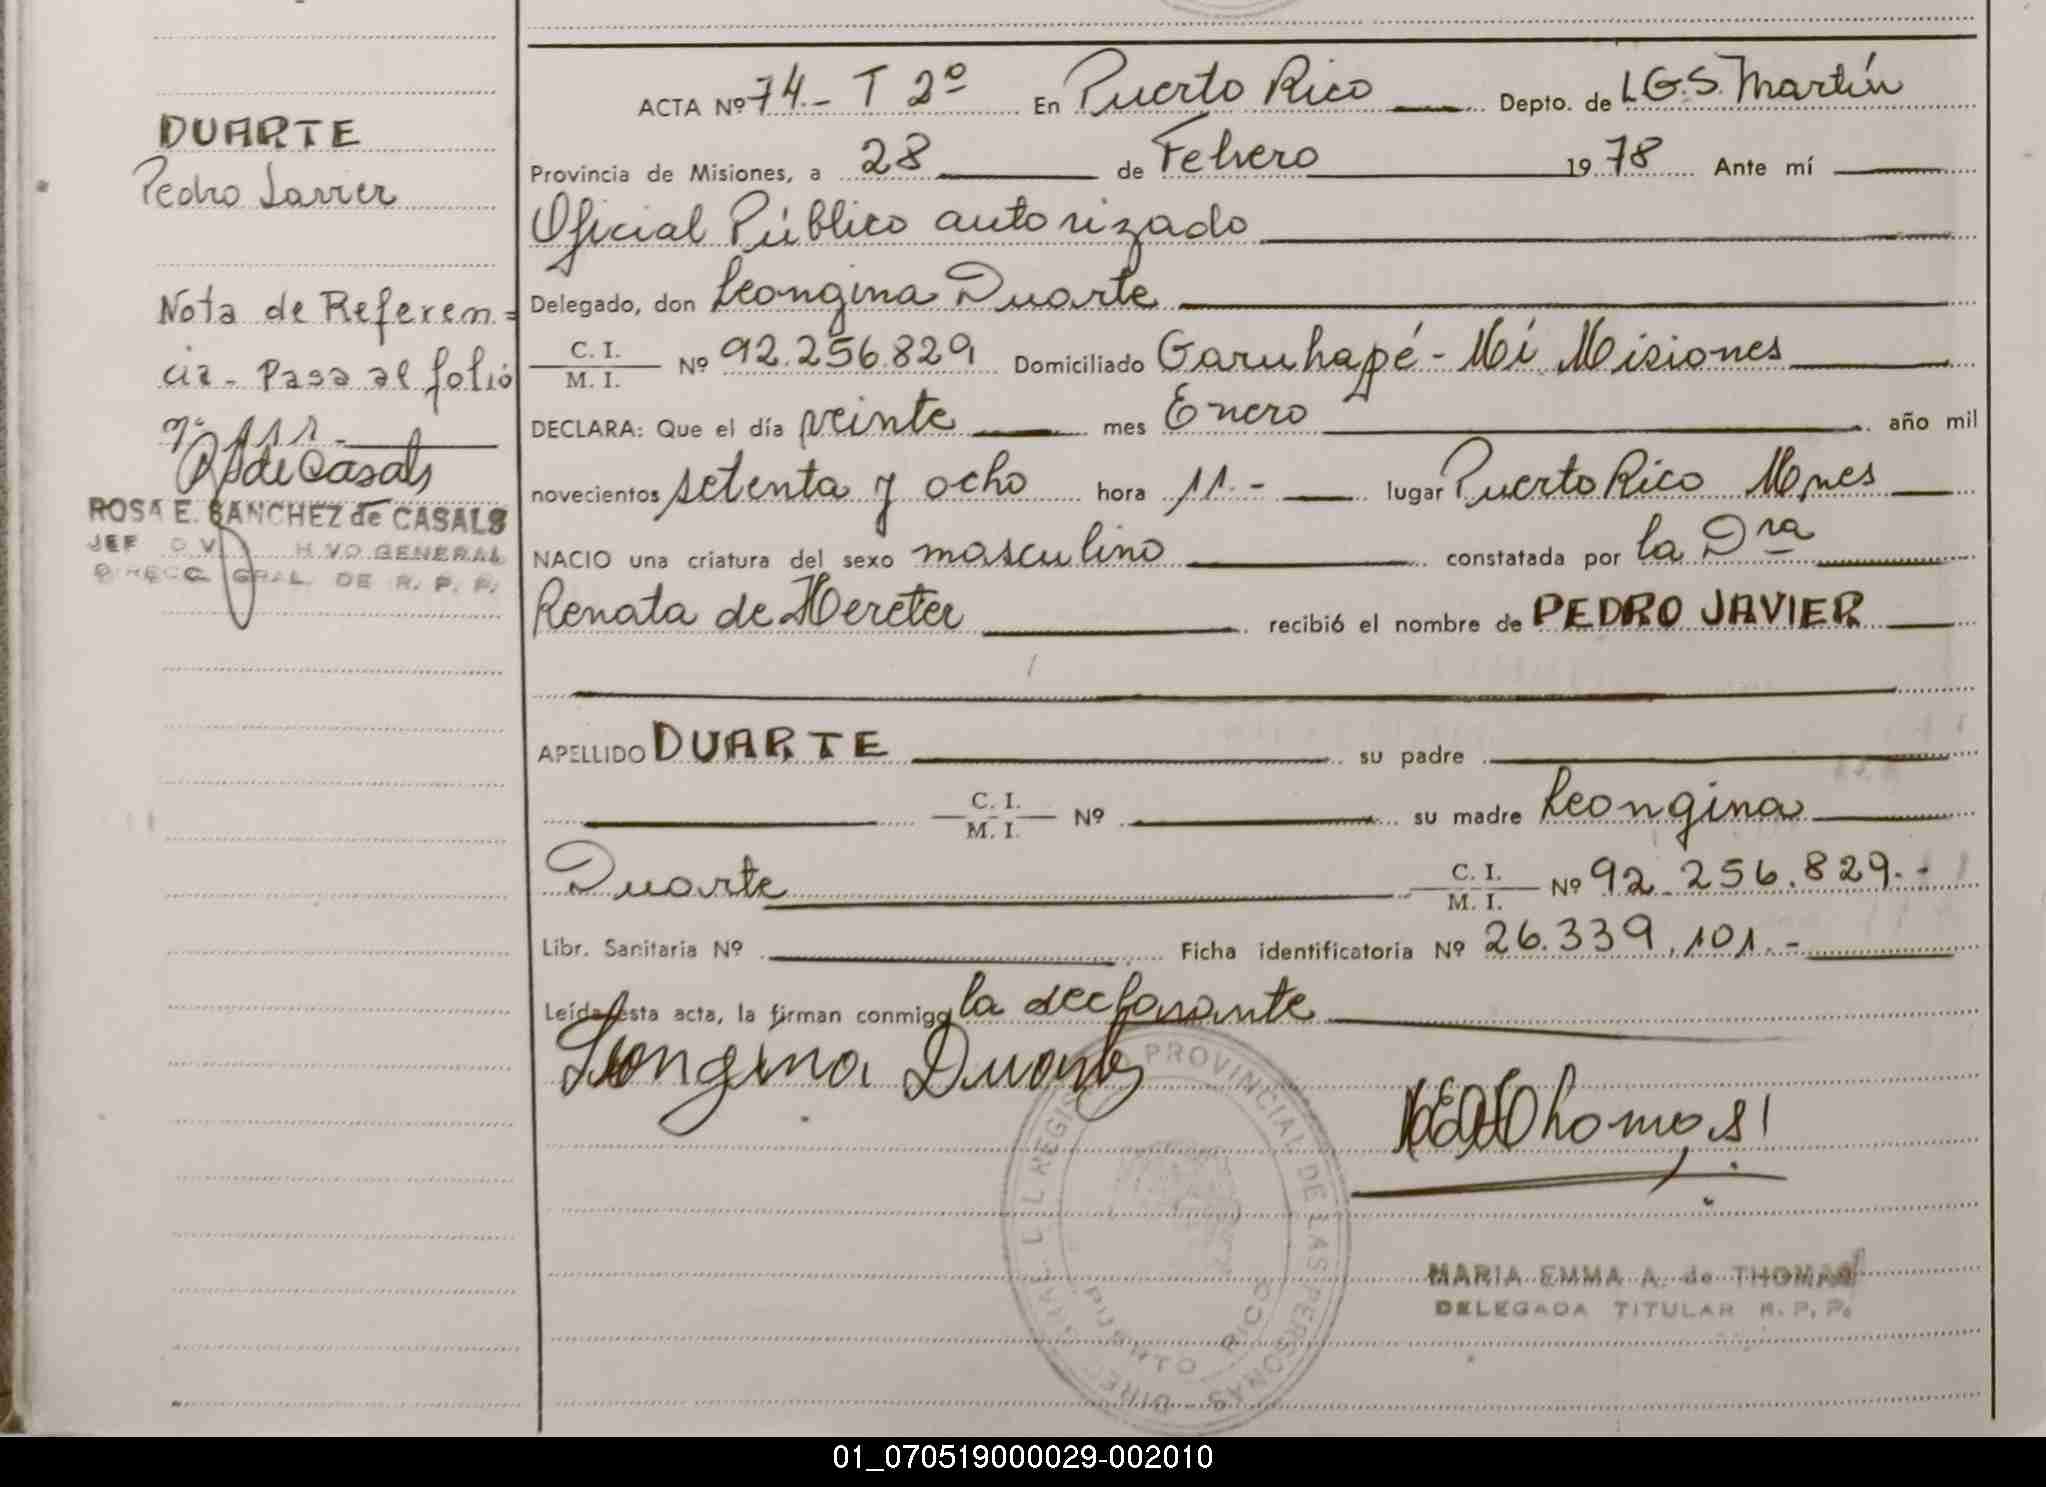 DUARTE
Pedro Javier
Nota de Referen=
cia - Pasa al folio
nº 111.-
ROSA E. SANCHEZ de CASALS
GENERAL
DIRECC. GRAL. DE R. P. P.
ACTA Nº 74.- T 2º En Puerto Rico Depto. de L.G.S. Martín
Provincia de Misiones, a 28 de Febrero 1978 Ante mí
Oficial Público autorizado
Delegado, don Leongina Duarte
C. I. / M. I. Nº 92.256.829 Domiciliado Garuhapé - Mí Misiones
DECLARA: Que el día veinte mes Enero año mil
novecientos setenta y ocho hora 11.- lugar Puerto Rico Mnes
NACIO una criatura del sexo masculino constatada por la Dra
Renata de Hereter recibió el nombre de PEDRO JAVIER
APELLIDO DUARTE su padre
C. I. / M. I. Nº su madre Leongina
Duarte C. I. / M. I. Nº 92.256.829.-
Libr. Sanitaria Nº Ficha identificatoria Nº 26.339.101.-
Leída esta acta, la firman conmigo la declarante
Leongina Duarte
REGISTRO PROVINCIAL DE LAS PERSONAS
PUERTO RICO
MARIA EMMA A. de THOMAS
DELEGADA TITULAR R. P. P.
01_070519000029-002010